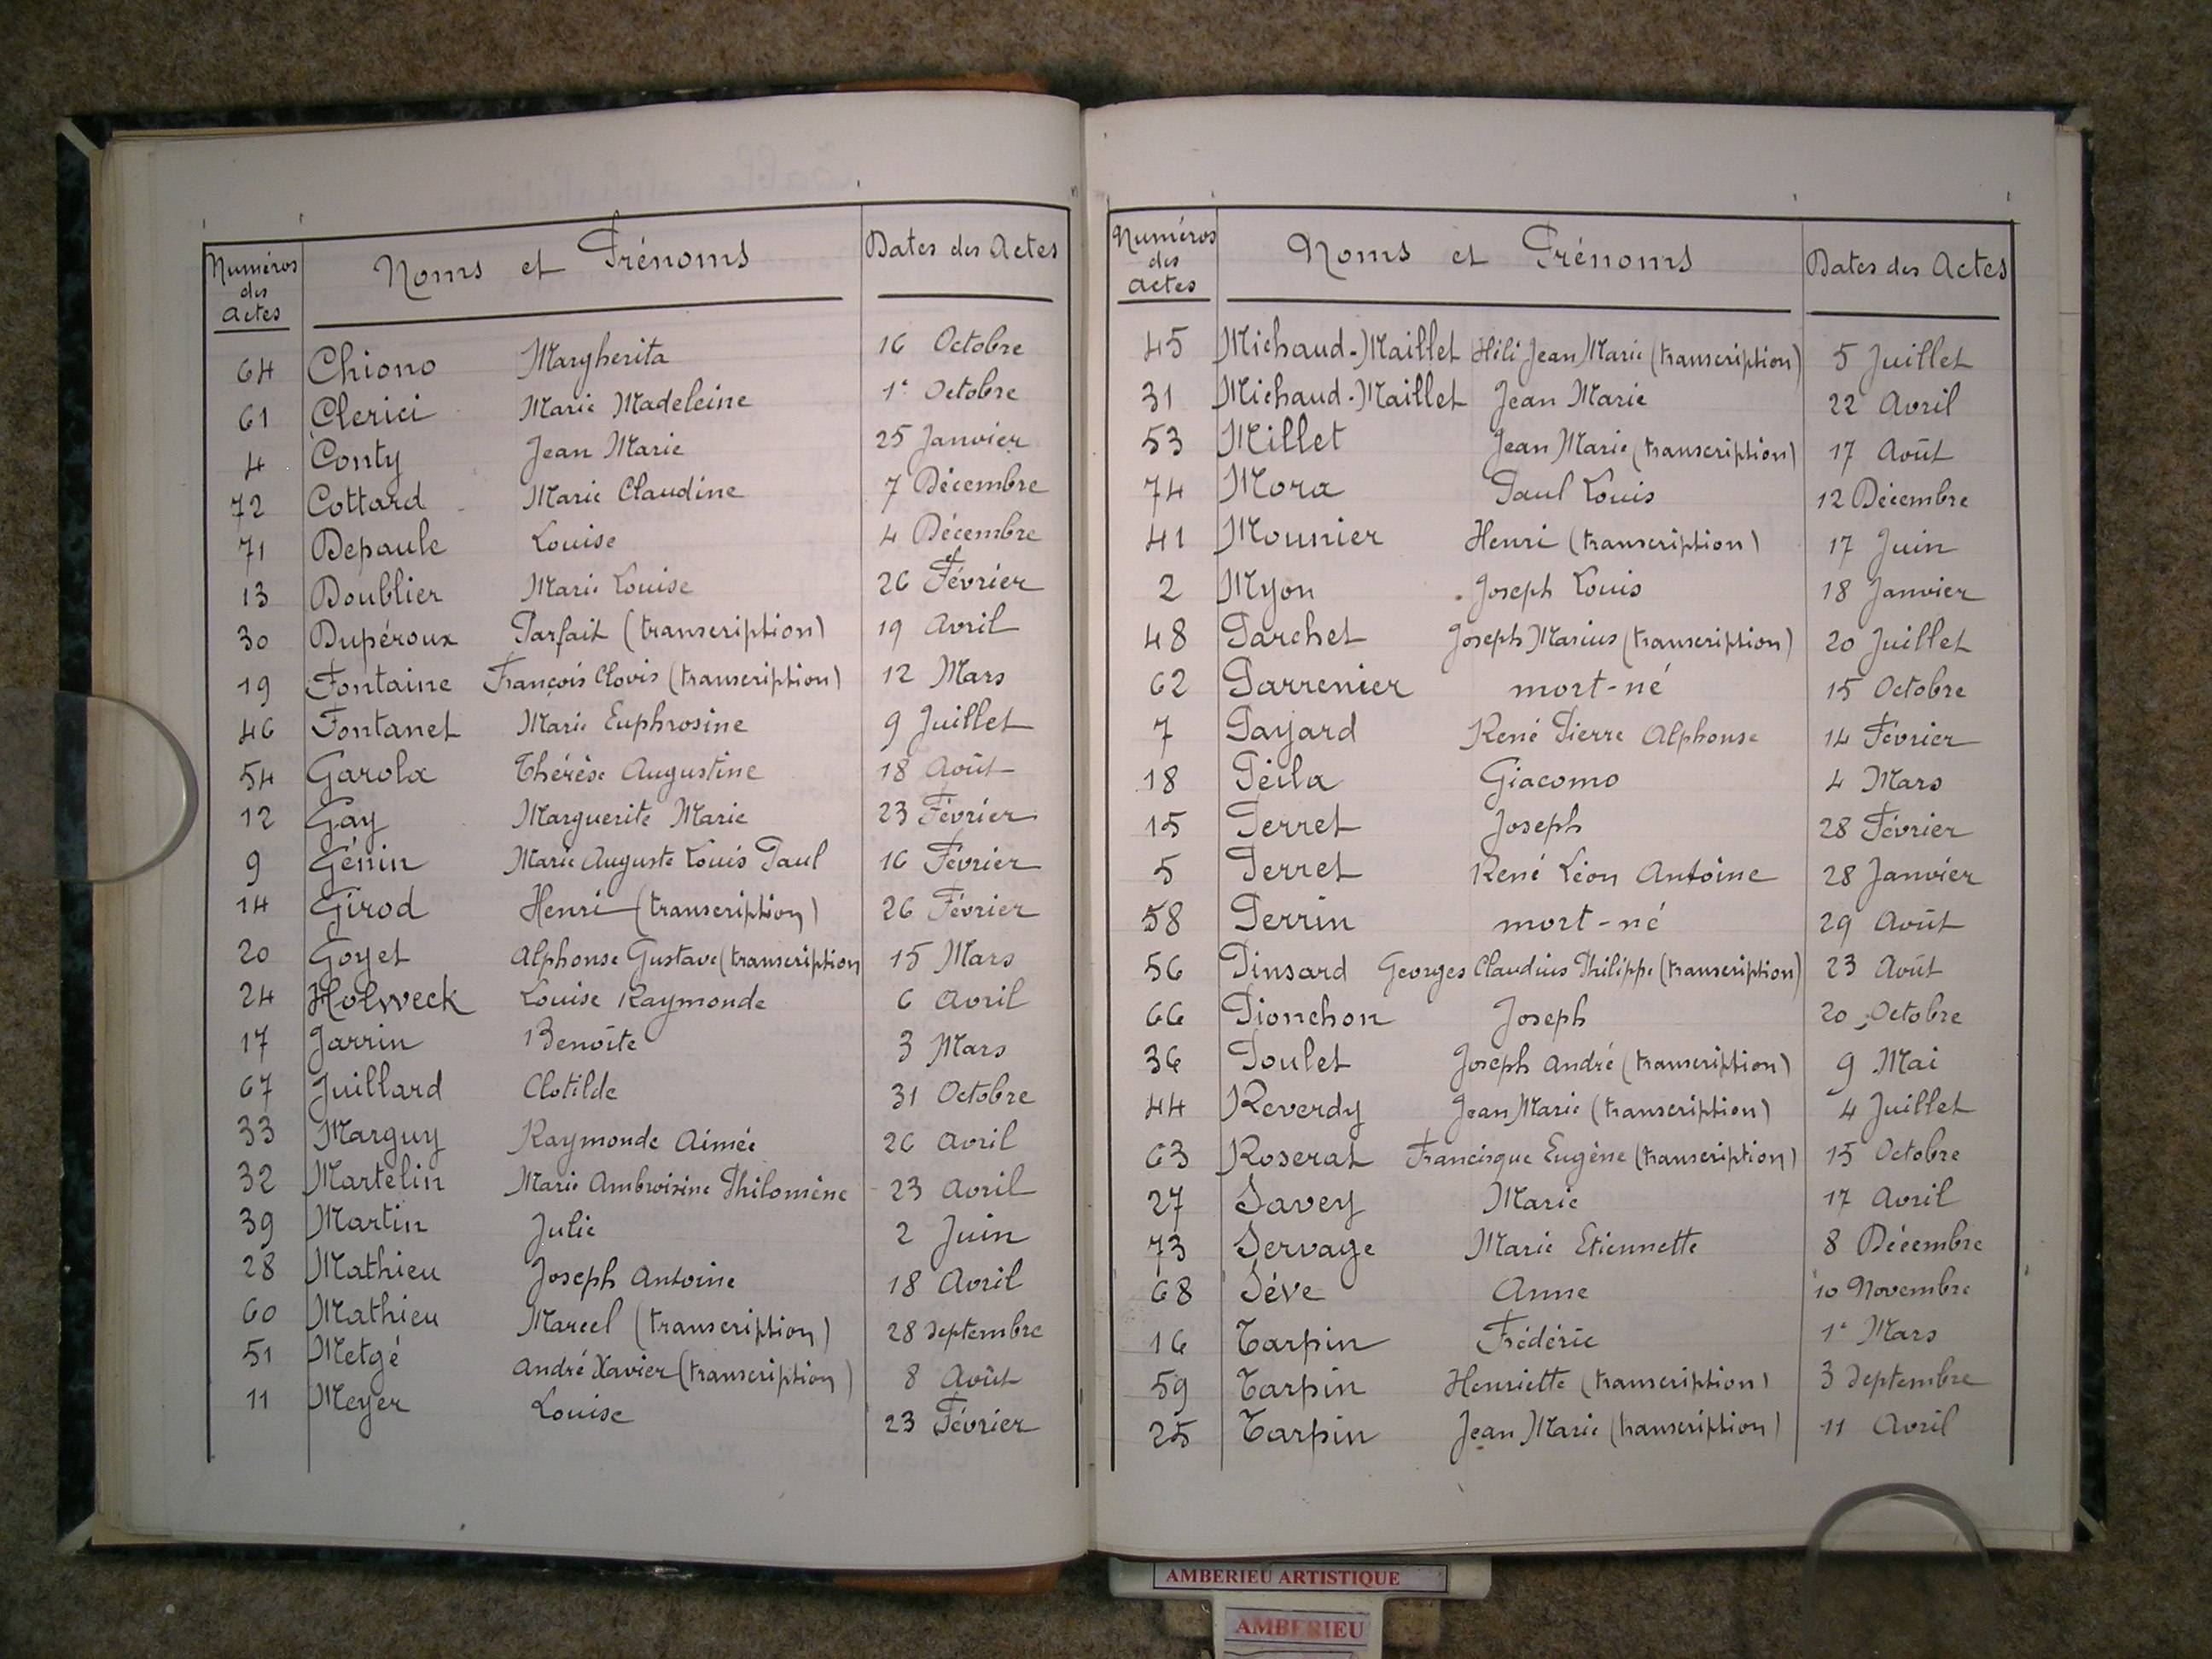 Numéros des Actes Noms et Prénoms Dates des Actes
64 Chiono Margherita 16 Octobre
61 Clerici Marie Madeleine 1er Octobre
4 Conty Jean Marie 25 Janvier
72 Cottard Marie Claudine 7 Décembre
71 Depaule Louise 4 Décembre
13 Doublier Marie Louise 26 Février
30 Dupéroux Parfait (transcription) 19 Avril
19 Fontaine François Clovis (transcription) 12 Mars
46 Fontanet Marie Euphrosine 9 Juillet
54 Garola Thérèse Augustine 18 Août
12 Gay Marguerite Marie 23 Février
9 Génin Marie Auguste Louis Paul 16 Février
14 Girod Henri (transcription) 26 Février
20 Goyet Alphonse Gustave (transcription 15 Mars
24 Holweck Louise Raymonde 6 Avril
17 Jarrin Benoîte 3 Mars
67 Juillard Clotilde 31 Octobre
33 Marguy Raymonde Aimée 26 Avril
32 Martelin Marie Ambroisine Philomène 23 Avril
39 Martin Julie 2 Juin
28 Mathieu Joseph Antoine 18 Avril
60 Mathieu Marcel (transcription) 28 Septembre
51 Metgé André Xavier (transcription) 8 Août
11 Meyer Louise 23 Février
Numéros des Actes Noms et Prénoms Dates des Actes
45 Michaud-Maillet Héli Jean Marie (transcription) 5 Juillet
31 Michaud-Maillet Jean Marie 22 Avril
53 Millet Jean Marie (transcription) 17 Août
74 Mora Paul Louis 12 Décembre
41 Mounier Henri (transcription) 17 Juin
2 Myon Joseph Louis 18 Janvier
48 Parchet Joseph Marius (transcription) 20 Juillet
62 Parrenier mort-né 15 Octobre
7 Payard René Pierre Alphonse 14 Février
18 Peila Giacomo 4 Mars
15 Perret Joseph 28 Février
5 Perret René Léon Antoine 28 Janvier
58 Perrin mort-né 29 Août
56 Pinsard Georges Claudius Philippe (transcription) 23 Août
66 Pionchon Joseph 20 Octobre
36 Poulet Joseph André (transcription) 9 Mai
44 Reverdy Jean Marie (transcription) 4 Juillet
63 Roserat Francisque Eugène (transcription) 15 Octobre
27 Savey Marie 17 Avril
73 Servage Marie Etiennette 8 Décembre
68 Sève Anne 10 Novembre
16 Tarpin Frédéric 1er Mars
59 Tarpin Henriette (transcription) 3 Septembre
25 Tarpin Jean Marie (transcription) 11 Avril
AMBERIEU ARTISTIQUE
AMBERIEU